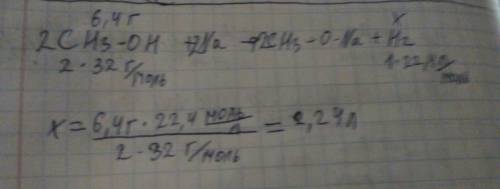 6,4 г x
2CH3-OH + 2Na → 2CH3-O-Na + H2
2·32 г/моль 1·22,4 л/моль
x = 6,4 г · 22,4 моль/л / 2·32 г/моль = 2,24 л